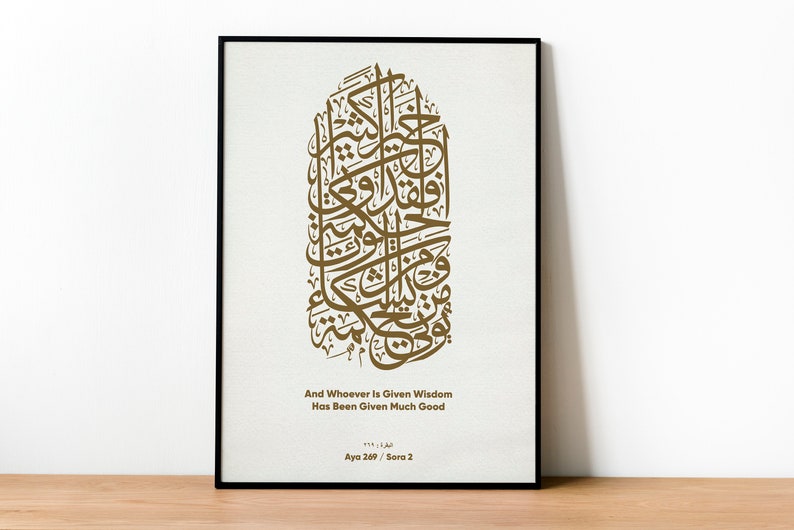 يؤتي الحكمة من يشاء ومن يؤت الحكمة فقد أوتي خيرا كثيرا
And Whoever Is Given Wisdom
Has Been Given Much Good
البقرة : ٢٦٩
Aya 269 / Sora 2